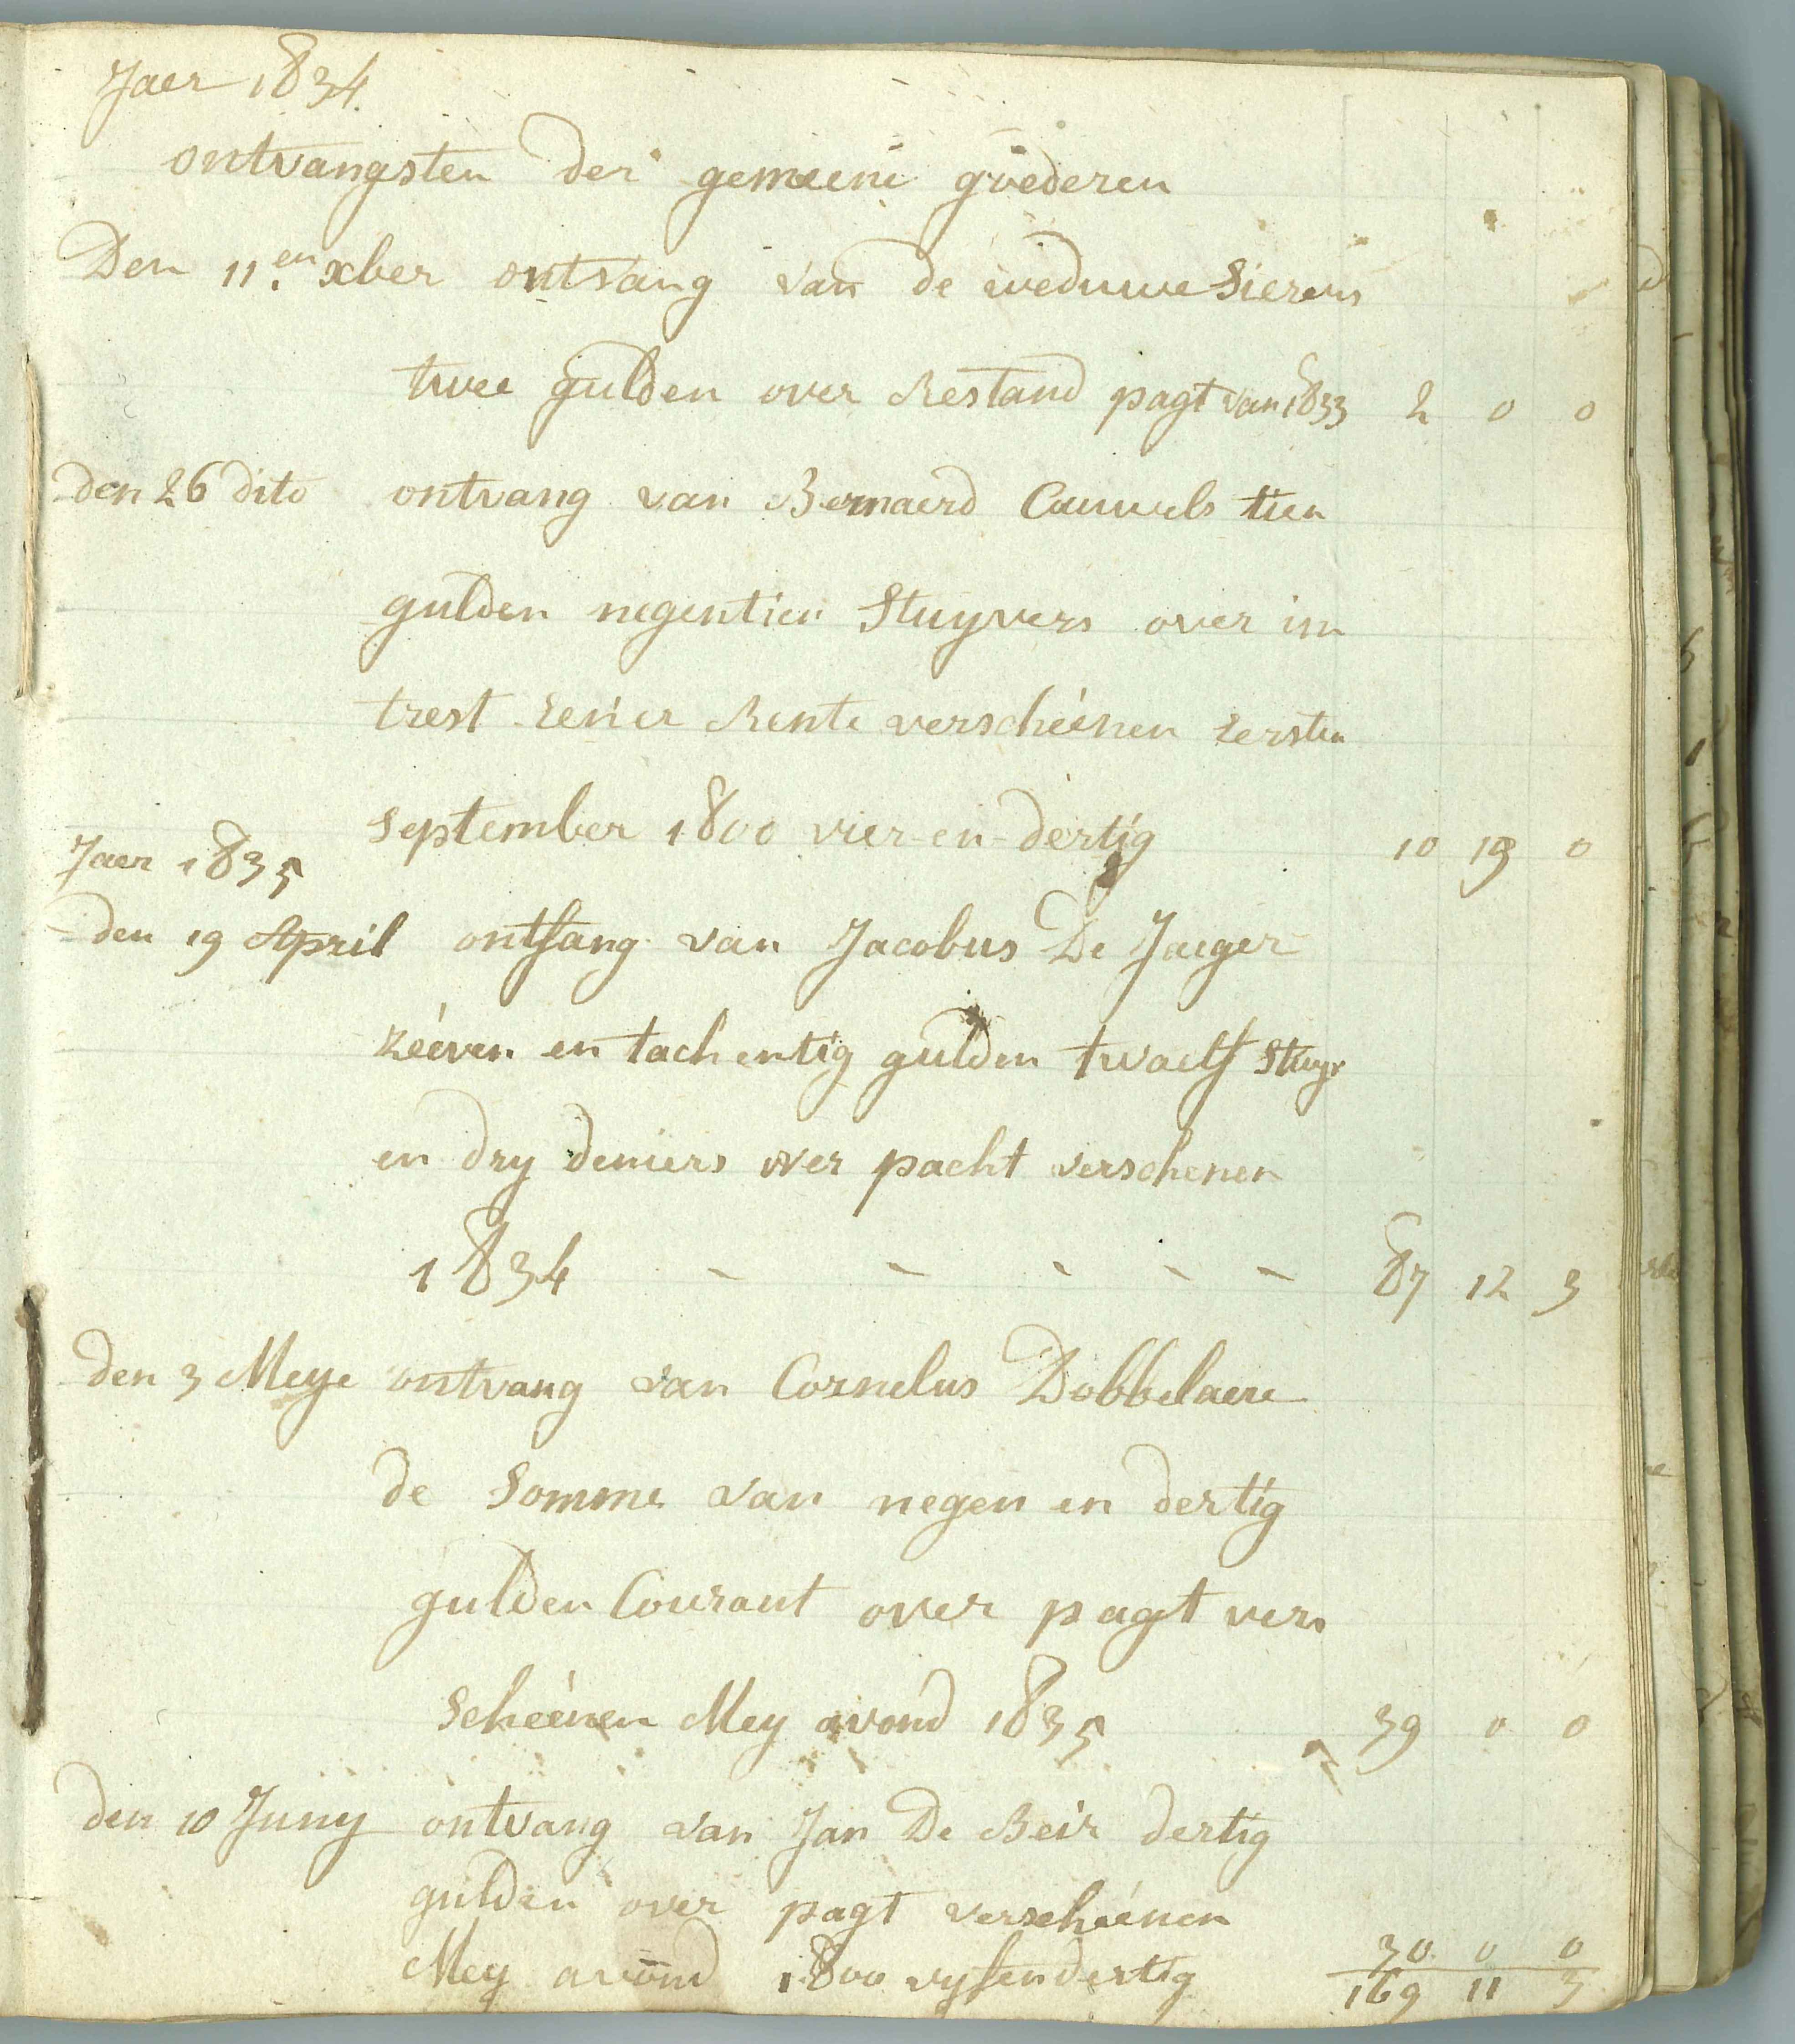 Jaer 1834.
ontvangsten der gemeene goederen
Den 11.en xber ontvang van de weduwe Sierens
twee gulden over Restand pagt van 1833 2 0 0
den 26 dito ontvang van Bernaerd Cauwels tien
gulden negentien Stuyvers over in
trest eener Rente verscheénen eersten
September 1800 vier-en-dertig 10 19 0
Jaer 1835
den 19 April ontfang van Jacobus De Jaeger
zéeven en tachentig gulden twaelf Stuyv
en dry deniers over pacht verschenen
1834 - - - - - 87 12 3
den 3 Meye ontvang van Cornelus Dobbelaere
de Somme van negen en dertig
gulden Courant over pagt ver
Scheénen Mey avond 1835 39 0 0
den 10 Juny ontvang van Jan De Beir dertig
gulden over pagt verscheénen
Mey avond 1800 vyfendertig 30 0 0
169 11 3